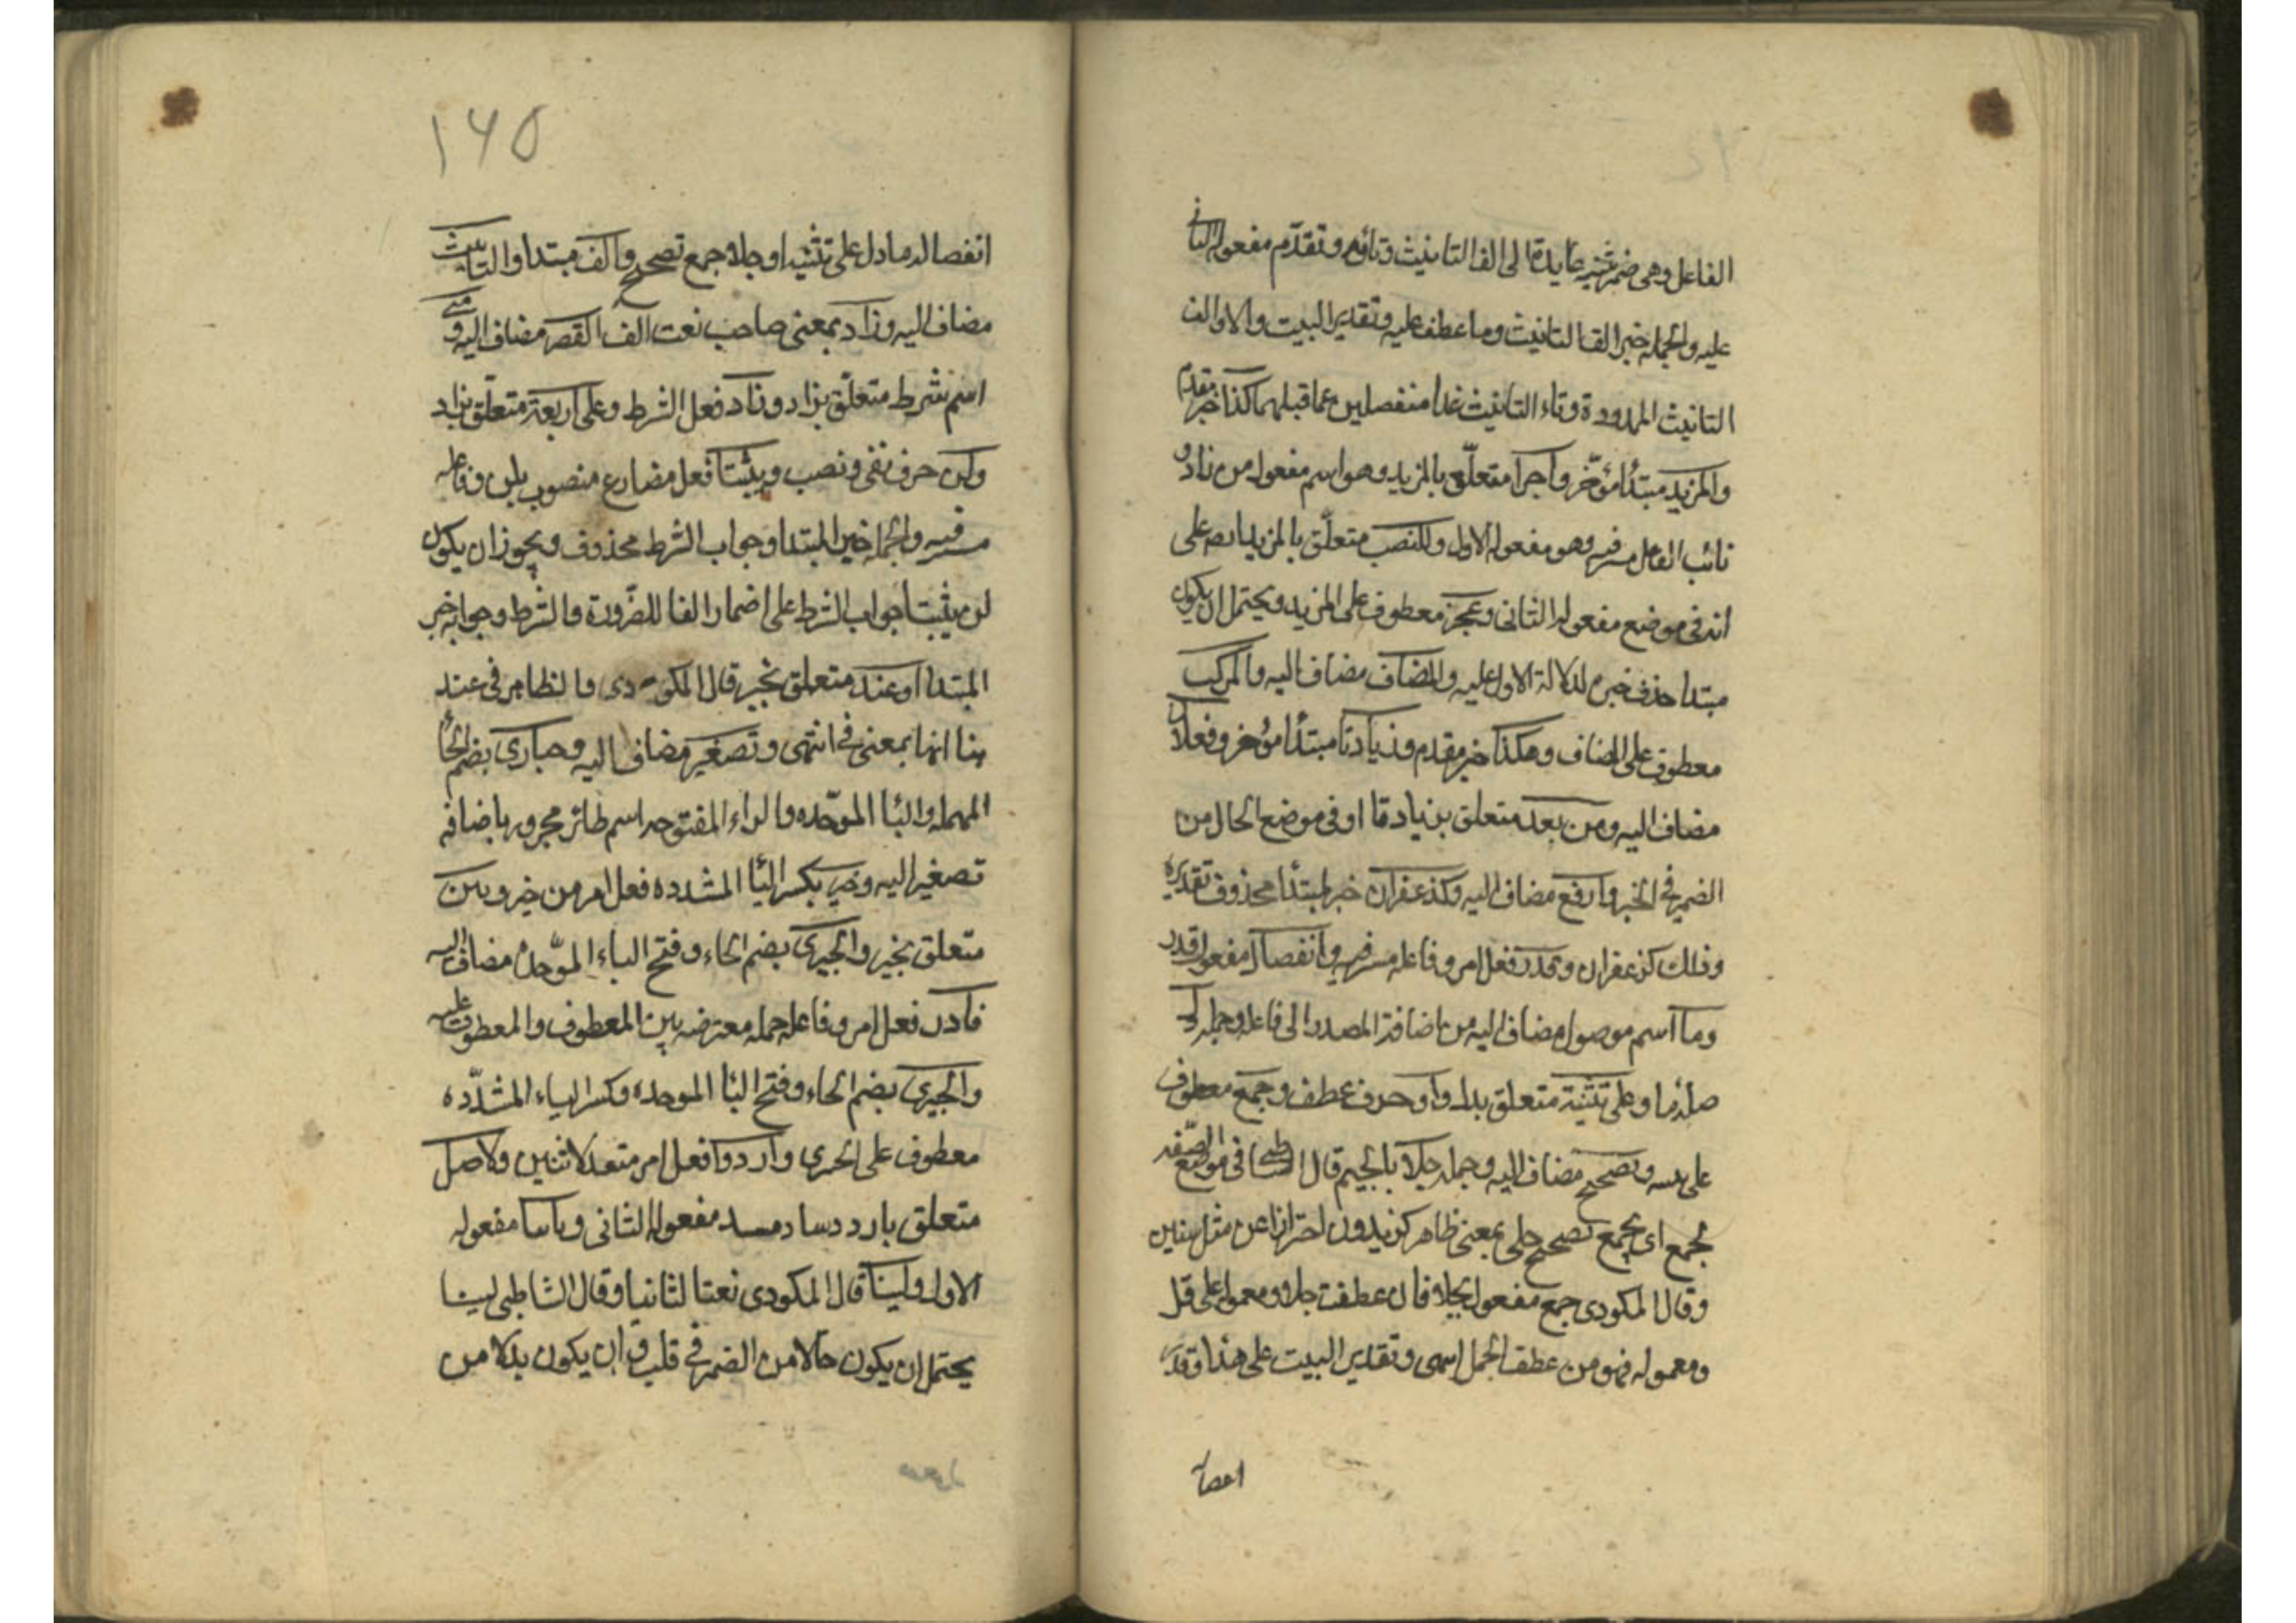 الفاعل وهى ضمير تثنيه عايدة الى الف التانيث وتائه وتقدم مفعوله الثانى
عليه والجمله خبر الف التانيث وما عطف عليه وتقدير البيت والاوالف
التانيث الممدودة وتاء التانيث غدا منفصلين عما قبلهما كذا خبر مقدم
والمزيد مبتدأ مؤخر وآخرا متعلق بالمزيد وهو اسم مفعول من زاد و
نائب الفاعل فيه وهو مفعوله الاول وللنصب متعلق بالمزيد على
انه فى موضع مفعوله الثانى وعجز معطوف على المزيد ويحتمل ان يكون
مبتدا حذف خبره لدلالة الاول عليه والمضاف مضاف اليه والمركب
معطوف على المضاف وهكذا خبر مقدم وزيادتا مبتدأ مؤخر وفعلان
مضاف اليه ومن بعد متعلق بزيادتا او فى موضع الحال من
الضمير فى الخبر واربع مضاف اليه وكزعفران خبر لمبتدأ محذوف تقديره
وذلك كزعفران وقدر فعل امر وفاعله فيه وانفصال مفعول قدر
وما اسم موصول مضاف اليه من اضافة المصدر الى فاعله وجمله دل
صلة ما وعلى تثنية متعلق بدل واو حرف عطف وجمع معطوف
على وتصحيح مضاف اليه وجمله جلا بالجيم قال الشاطبى فى موضع الصفه
لجمع اى بجمع تصحيح جلى بمعنى ظاهر كزيدون احترازا عن مثل سنين
وقال المكودى جمع مفعول بجلا فان عطفت جلا ومعموله على قل
ومعموله فهو من عطف الجمل اسمى وتقدير البيت على هذا وقدر
انفصا
١٦٥
انفصال ما دل على تثنيه او جلا جمع تصحيح والف مبتدا والتانيث
مضاف اليه وذا د بمعنى صاحب نعت الف القصر مضاف اليه ومتى
اسم شرط متعلق بزاد وزاد فعل الشرط وعلى اربعة متعلق بزاد
ولن حرف نفى ونصب ويثبتا فعل مضارع منصوب بلن وفاعله
فيه والجمله خبر المبتدا وجواب الشرط محذوف ويجوز ان يكون
لن يثبتا جواب الشرط على اضمار الفا للضرورة والشرط وجوابه خبر
المبتدا وعند متعلق بخير قال المكودى والظاهر فى عند
هنا انها بمعنى فى انتهى وتصغير مضاف اليه وحبارى بضم الحا
المهمله والبا الموحده والراء المفتوحه اسم طائر مجرور باضافه
تصغير اليه وخير بكسر اليا المشدده فعل امر من خير وبين
متعلق بخير والحبيرى بضم الحاء وفتح الباء الموحده مضاف اليه
فادر فعل امر وفاعله جمله معترضه بين المعطوف والمعطوف عليه
والحبير بضم الحاء وفتح البا الموحده وكسر الياء المشدده
معطوف على الحبيرى واردد فعل امر متعد لاثنين ولاصل
متعلق باردد ساد مسد مفعوله الثانى وثانيا مفعوله
الاول ولينا قال المكودى نعتا لثانيا وقال الشاطبى لينا
يحتمل ان يكون حالا من الضمير فى قلب وان يكون بدلا من